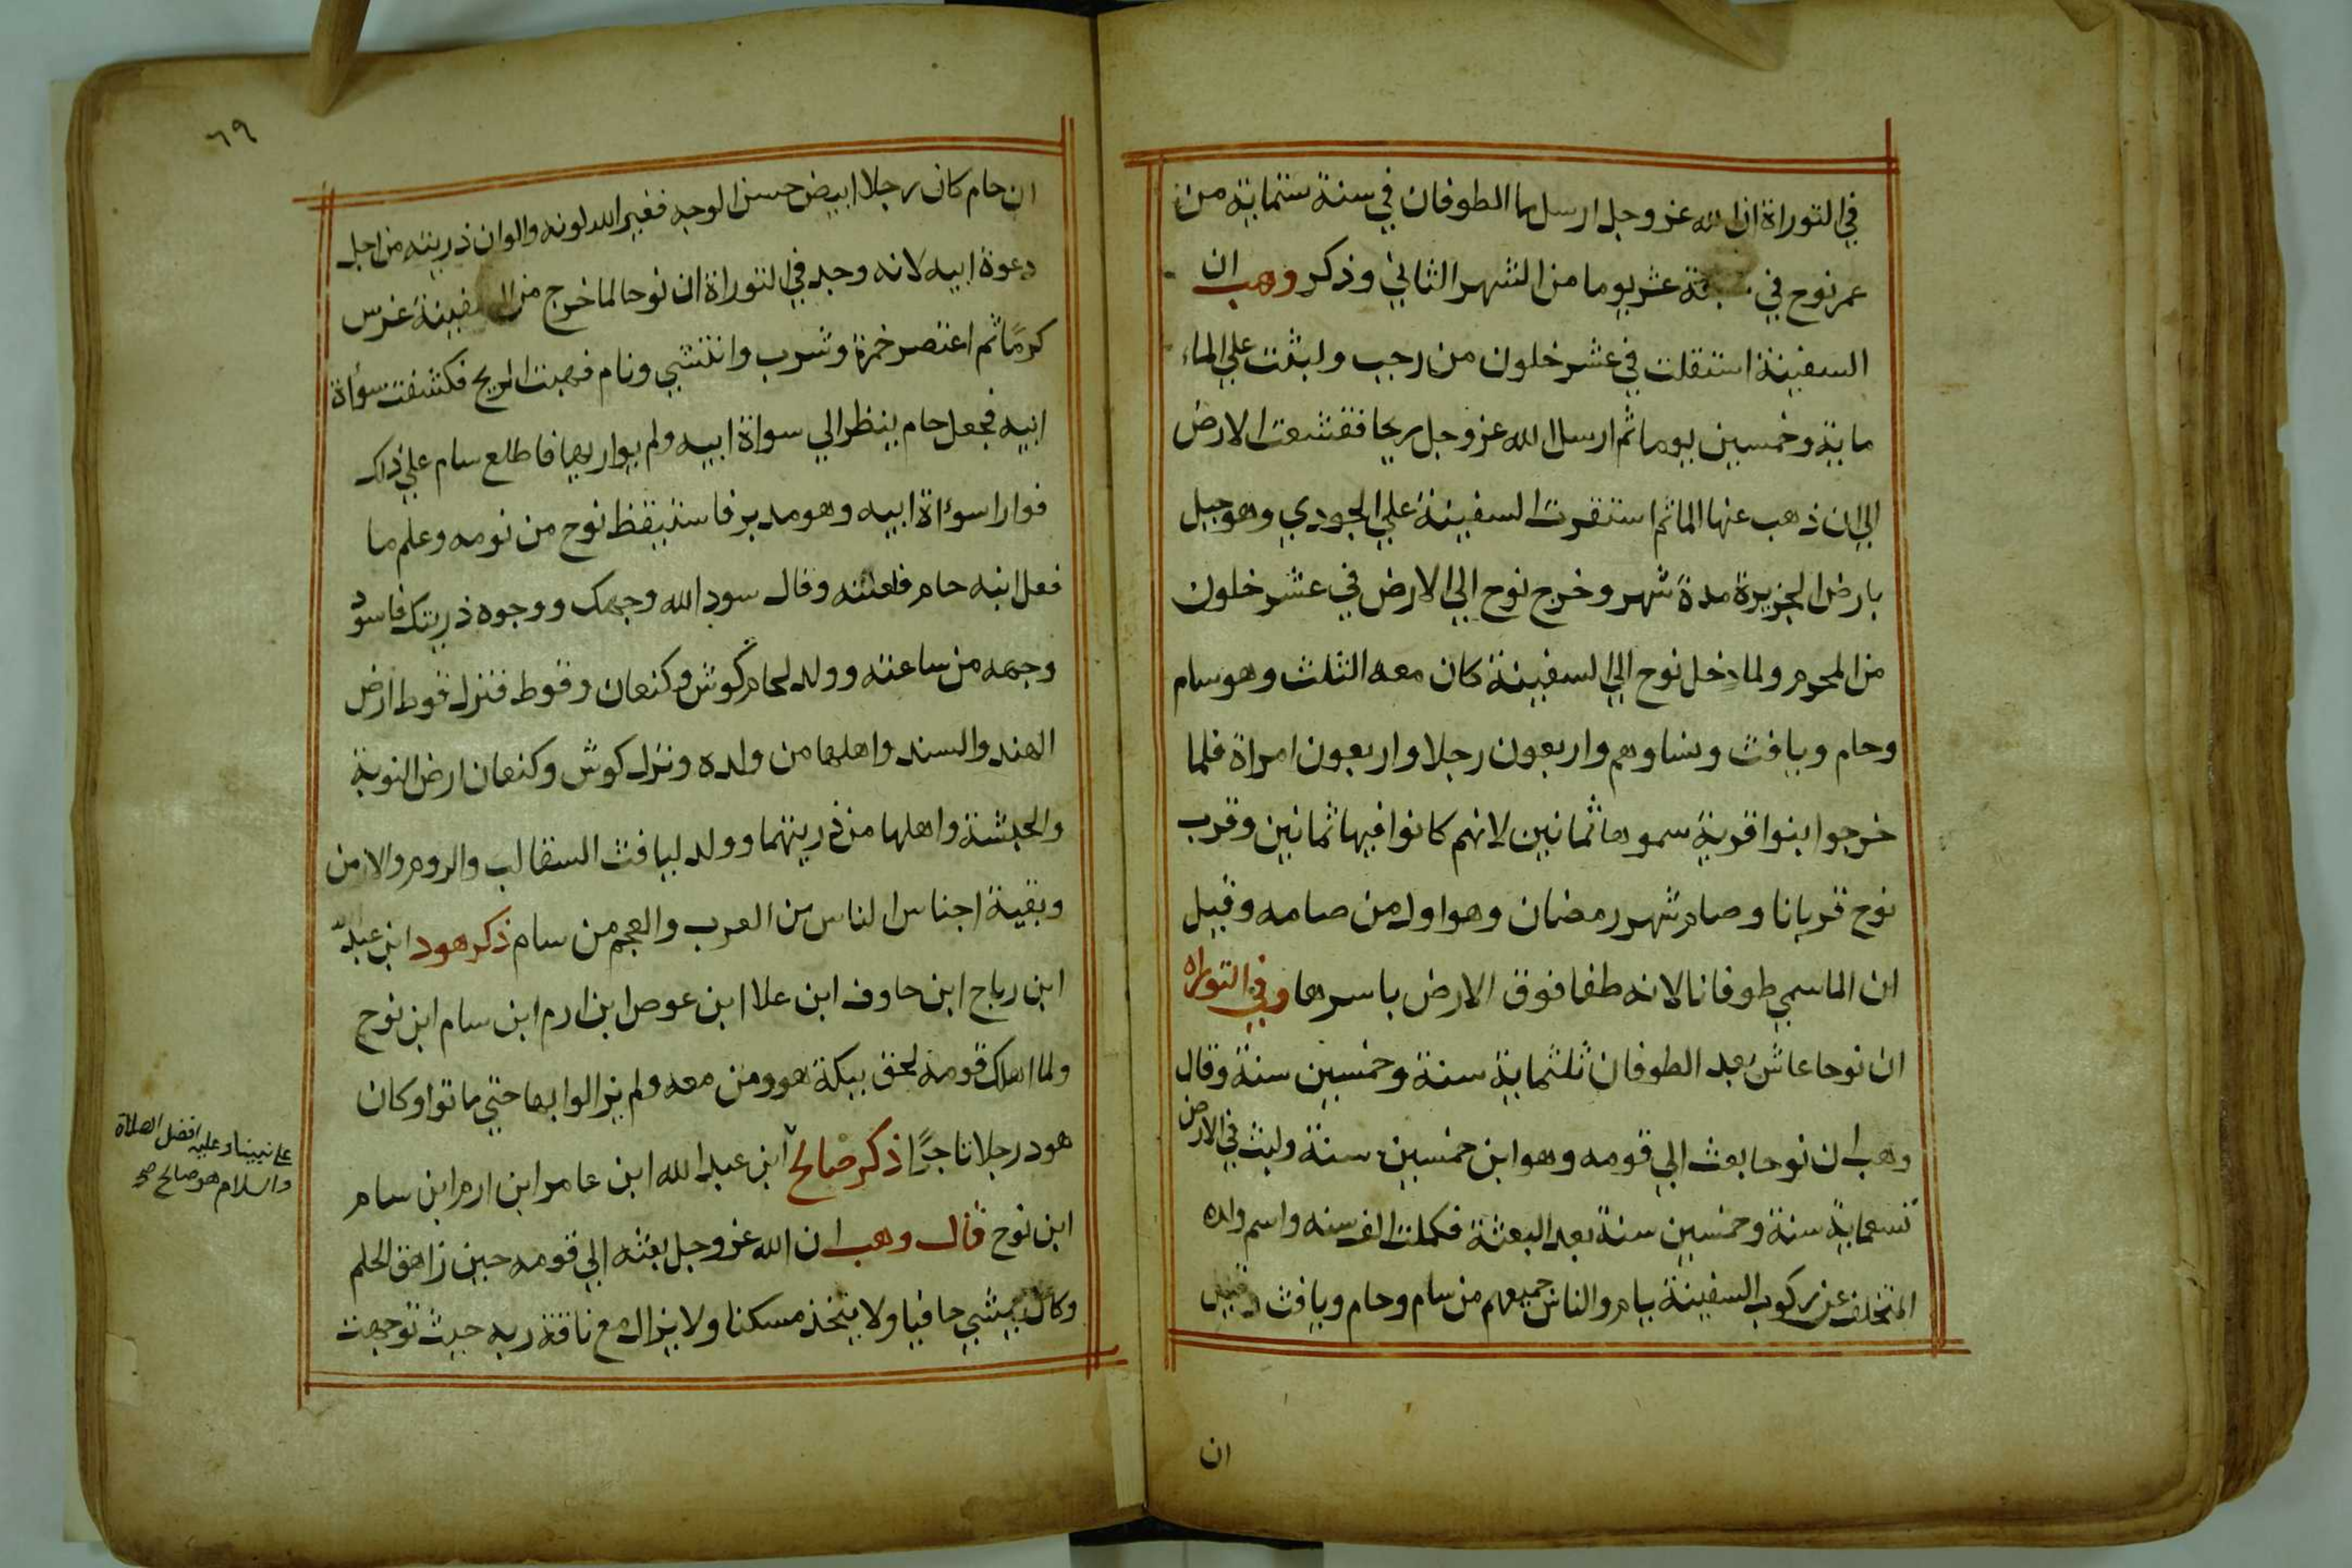 في التوراة ان الله عز وجل ارسل ما الطوفان في سنة ستماية من
عمر نوح في عشر يوما من الشهر الثاني وذكر وهب ان
السفينة استقلت في عشر خلون من رجب ولبثت علي الماء
ماية وخمسين يوما ثم ارسل الله عز وجل ريحا فقشعت الارض
الي ان ذهب عنها الما ثم استقرت السفينة علي الجودي وهو جبل
بارض الجزيرة مدة شهر وخرج نوح الي الارض في عشر خلون
من المحرم ولما دخل نوح الي السفينة كان معه الثلث وهو سام
وحام ويافث ونساوهم واربعون رجلا واربعون امراة فلما
خرجوا بنوا قرية سموها ثمانين لانهم كانوا فيها ثمانين وقرب
نوح قربانا وصام شهر رمضان وهو اول من صامه وقيل
ان الما سمي طوفانا لانه طفا فوق الارض باسرها وفي التوراه
ان نوحا عاش بعد الطوفان ثلثماية سنة وخمسين سنة وقال
وهب ان نوحا بعث الي قومه وهو ابن خمسين سنة ولبث في الارض
تسعماية سنة وخمسين سنة بعد البعثة فكملت الف سنه واسم ولده
المتخلف عن ركوب السفينة يام والناس جميعهم من سام وحام ويافث وقيل
ان
٦٩
ان حام كان رجلا ابيض حسن الوجه فغير الله لونه والوان ذريته من اجل
دعوة ابيه لانه وجد في التوراة ان نوحا لما خرج من السفينة غرس
كرمًا ثم اعتصر خمرة وشرب وانتشي ونام فهبت الريح فكشفت سؤاة
ابيه فجعل حام ينظر الي سواة ابيه ولم يواريها فاطلع سام علي ذاك
فوارا سوءاة ابيه وهو مدبر فاستيقظ نوح من نومه وعلم ما
فعل ابنه حام فلعنه وقال سود الله وجهك ووجوه ذريتك فاسود
وجهه من ساعته وولد لحام كوش وكنعان وقوط فنزل قوط ارض
الهند والسند واهلها من ولده ونزل كوش وكنعان ارض النوبة
والحبشة واهلها من ذريتهما وولد ليافث السقالب والروم والارمن
وبقية اجناس الناس من العرب والعجم من سام ذكر هود ابن عبد الله
ابن رباح ابن حاوف ابن علا ابن عوص ابن ارم ابن سام ابن نوح
ولما اهلك قومه لحق ببكة هو ومن معه ولم يزالوا بها حتي ماتوا وكان
هود رجلا تاجرًا ذكر صالح ابن عبد الله ابن عامر ابن ارم ابن سام
ابن نوح قال وهب ان الله عز وجل بعثه الي قومه حين زاهق الحلم
وكان يمشي حافيا ولا يتخذ مسكنا ولا يزال مع ناقة ربه حيث توجهت
علي نبينا وعليه افضل الصلاة
والسلام هو صالح صح